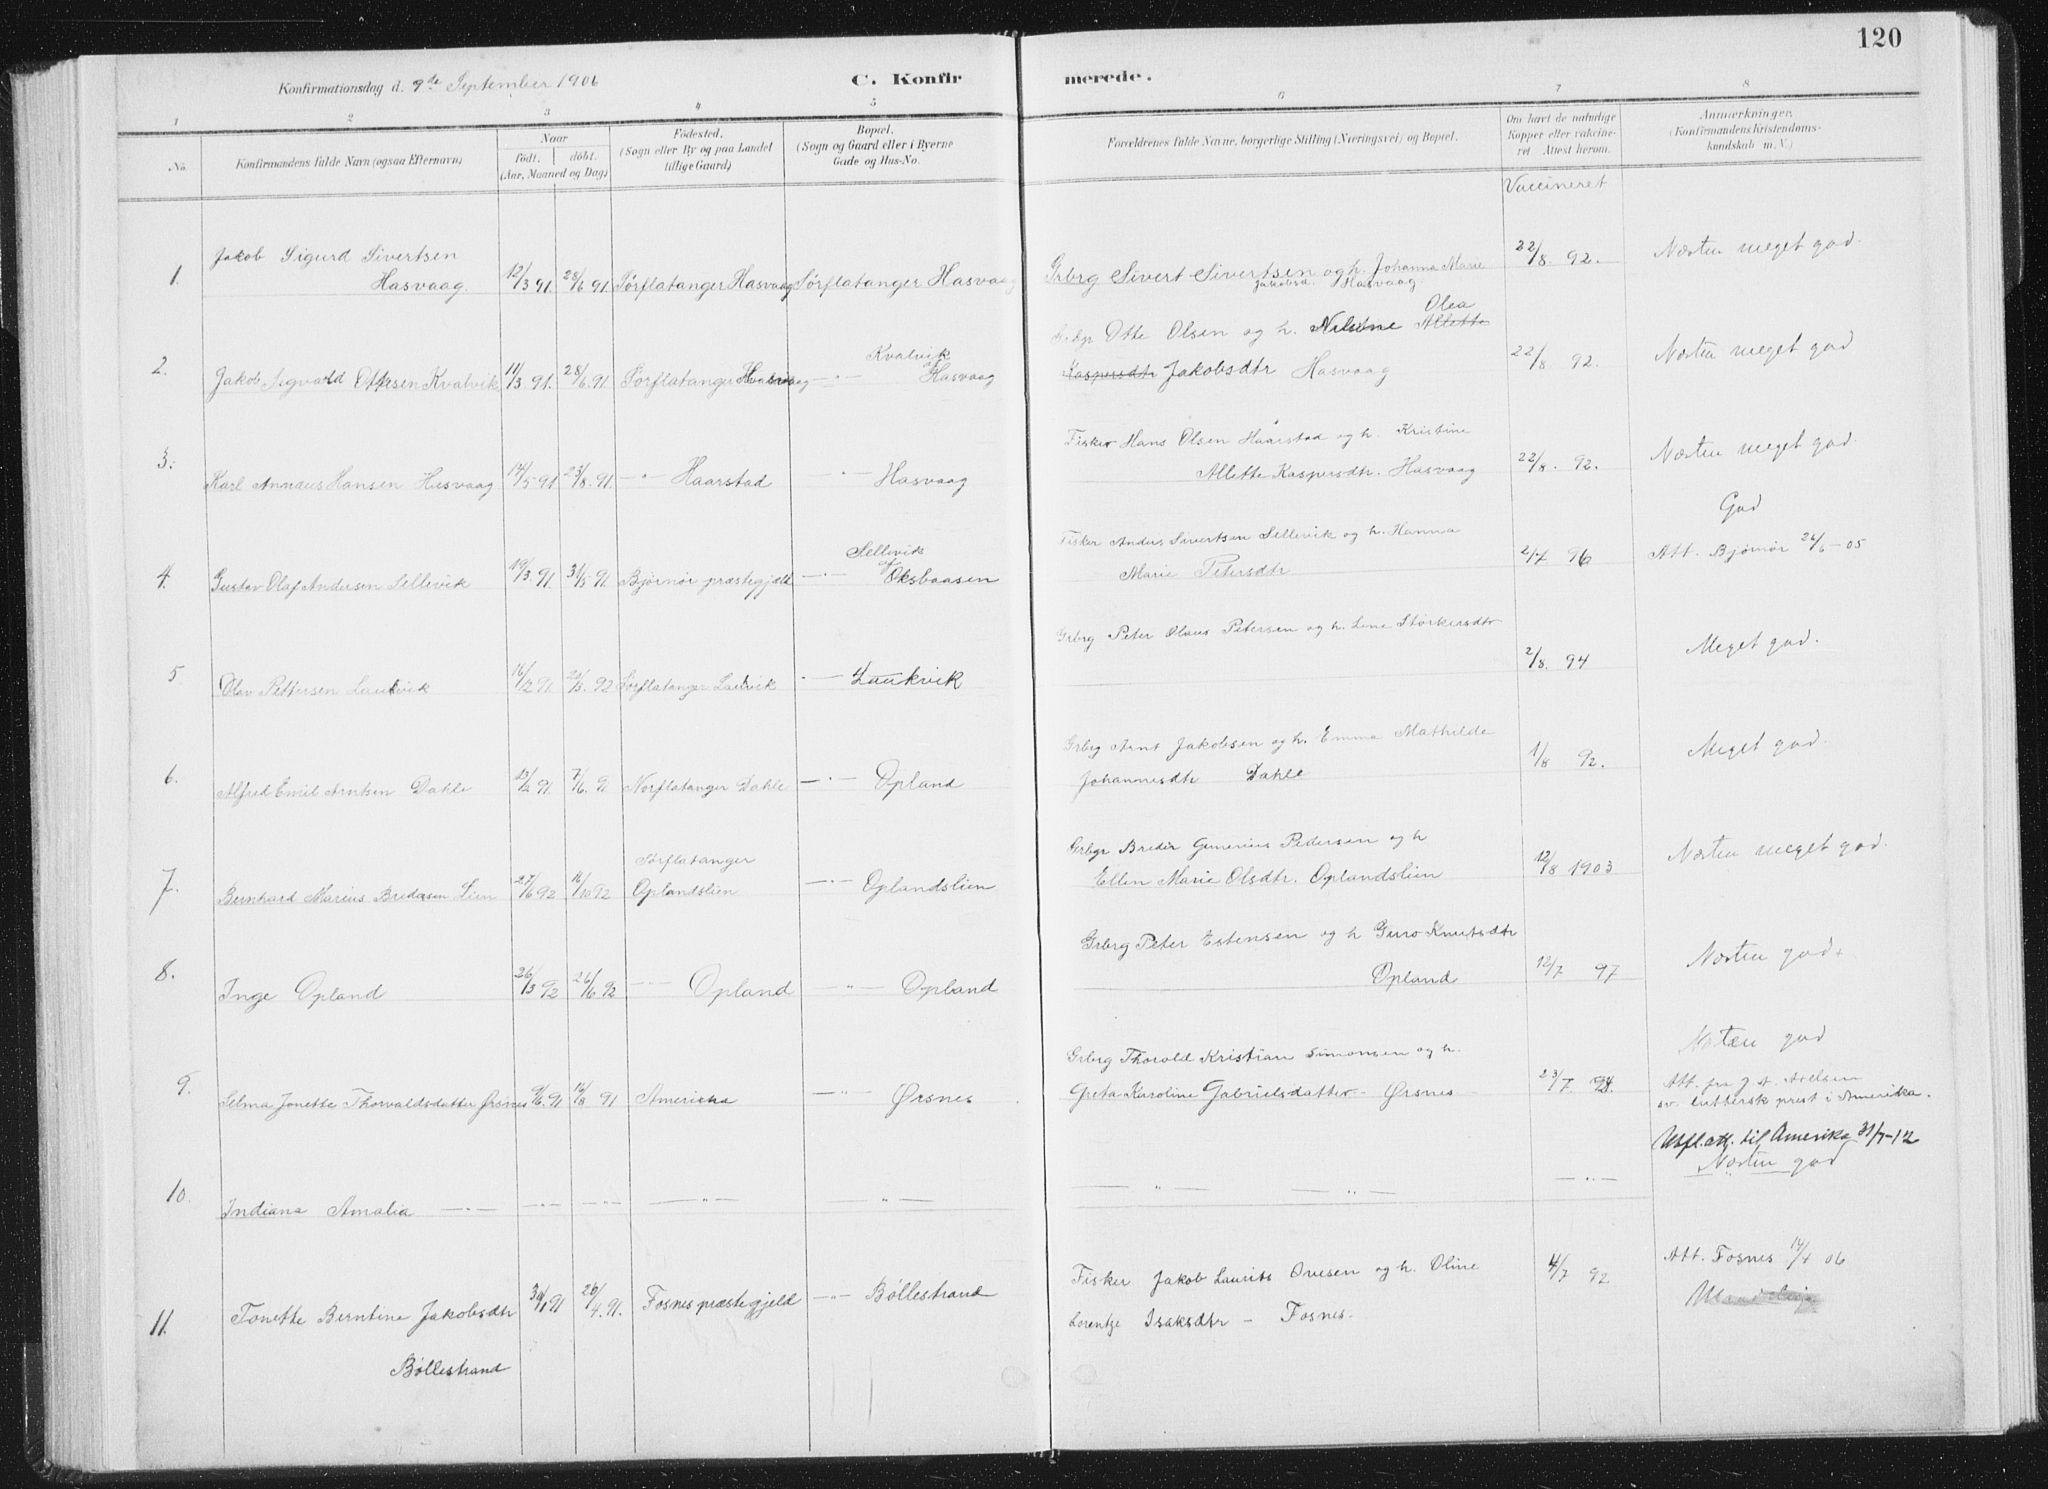 120
Konfirmationsdag d. 9de September 1906 C. Konfirmerede.
1 2 3 4 5 6 7 8
No. Konfirmandens fulde Navn (ogsaa Efternavn)
Naar født. døbt. (Aar, Maaned og Dag)
Fødested. (Sogn eller By og paa Landet tillige Gaard)
Bopæl. (Sogn og Gaard eller i Byerne Gade og Hus-No.
Forældrenes fulde Navne, borgerlige Stilling (Næringsvei) og Bopæl.
Om havt de naturlige Kopper eller vaccineret - Attest herom.
Anmærkninger. (Konfirmandens Kristendomskundskab m. V.)
Vaccineret
1. Jakob Sigurd Sivertsen
Hasvaag. 12/3 91. 28/6 91. Sørflatanger Hasvaag Sørflatanger Hasvaag Grbrg Sivert Sivertsen og h. Johanna Marie
Jakobsd. Hasvaag. 22/8. 92. Næsten meget god.
2. Jakob Sigvald Ottesen Kvalvik 11/3 91. 28/6. 91. Sørflatanger Hasvaag -"- Kvalvik
af Hasvaag Grbgr Otte Olsen og h. Nilsine Allette Olea
Kaspersdtr Jakobsdtr Hasvaag 22/8. 92. Næsten meget god
3. Karl Annæus Hansen Hasvaag 14/5 91 23/8. 91. -"- Haarstad -"- Hasvaag Fisker Hans Olsen Haarstad og h. Kristine
Allette Kaspersdtr. Hasvaag 22/8. 92. Næsten meget god.
4. Gustav Olaf Andersen Sellevik 19/3. 91. 31/5 91. Bjørnør præstegjæld -"- Sellevik
af Oksbaasen Fisker Anders Sivertsen Sellevik og h. Hanna
Marie Petersdtr 2/7 96 God
Att. Bjørnør 26/6-05
5 Olav Pettersen Laukvik 16/2 91. 92 Sørflatanger Laukvik -"- Laukvik Grbrg Peter Olaus Petersen og h. Lene Størkersdtr 2/8. 94 Meget god.
6. Alfred Emil Arntsen Dahle 13/2 91. 7/6. 91 Norflatanger Dahle -"- Opland Grbrg Arnt Jakobsen og h. Emma Mathilde
Johannesdtr Dahle 1/8 92. Meget god.
7. Bernhard Marius Bredesen Lien 27/6 92 16/10 92 Sørflatanger
Oplandslien -"- Oplandslien Grbgr Breder Gunerius Pedersen og h
Ellen Marie Olsdtr. Oplandslien 12/8 1903 Næsten meget god.
8. Inge Opland 26/3 92 26/6 92 -"- Opland -"- Opland Grbrg Peter Estensen og h Guro Knutsdtr
Opland 12/7 97 Næsten god+
9. Selma Jonette Thorvaldsdatter Ørsnes 9/6. 91 16/8 91 Amerika -"- Ørsnes Grbrg Thorvald Kristian Simonsen og h.
Greta Karoline Gabrielsdatter - Ørsnes 23/7. 94. Næsten god
Att. fra
sv. luthersk prest i Amerika.
Utfl. att. til Amerika 31/7-12
10. Indiana Amalia -"- -"- -"- -"- -"- -"- -"- -"- Næsten god
11. Tonette Berntine Jakobsdtr
Bøllestrand 30/1 91 26/4. 91. Fosnes præstegjeld -"- Bøllestrand Fisker Jakob Laurits Ovesen og h. Oline
Lorentze Isaksdtr - Fosnes. 4/7 92 Att. Fosnes 14/4 06